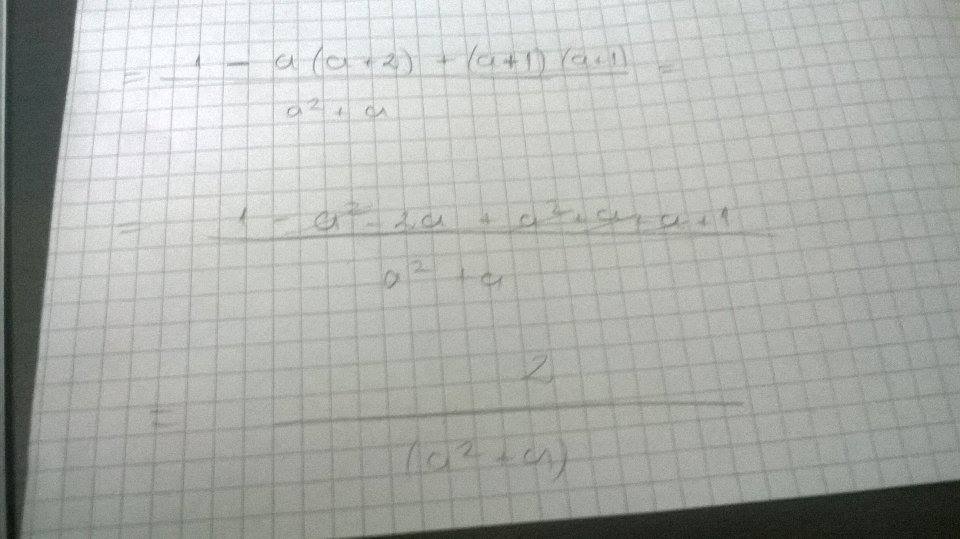 = 1 - a (a+2) + (a+1) (a+1) =
a² + a
= 1 - a² - 2a + a² + a + a + 1
a² + a
= 2
(a² + a)